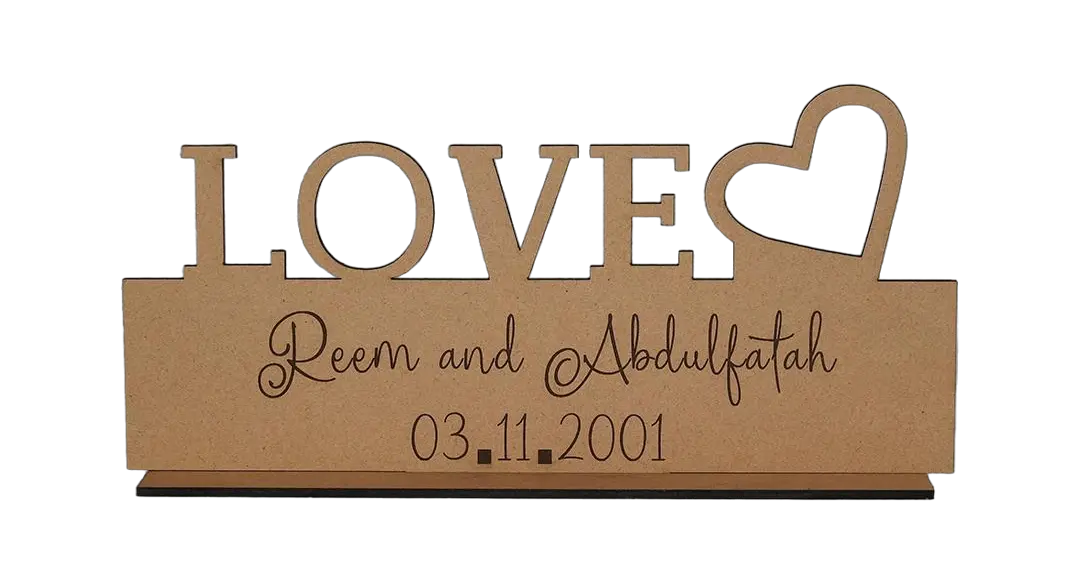 LOVE
Reem and Abdulfatah
03.11.2001